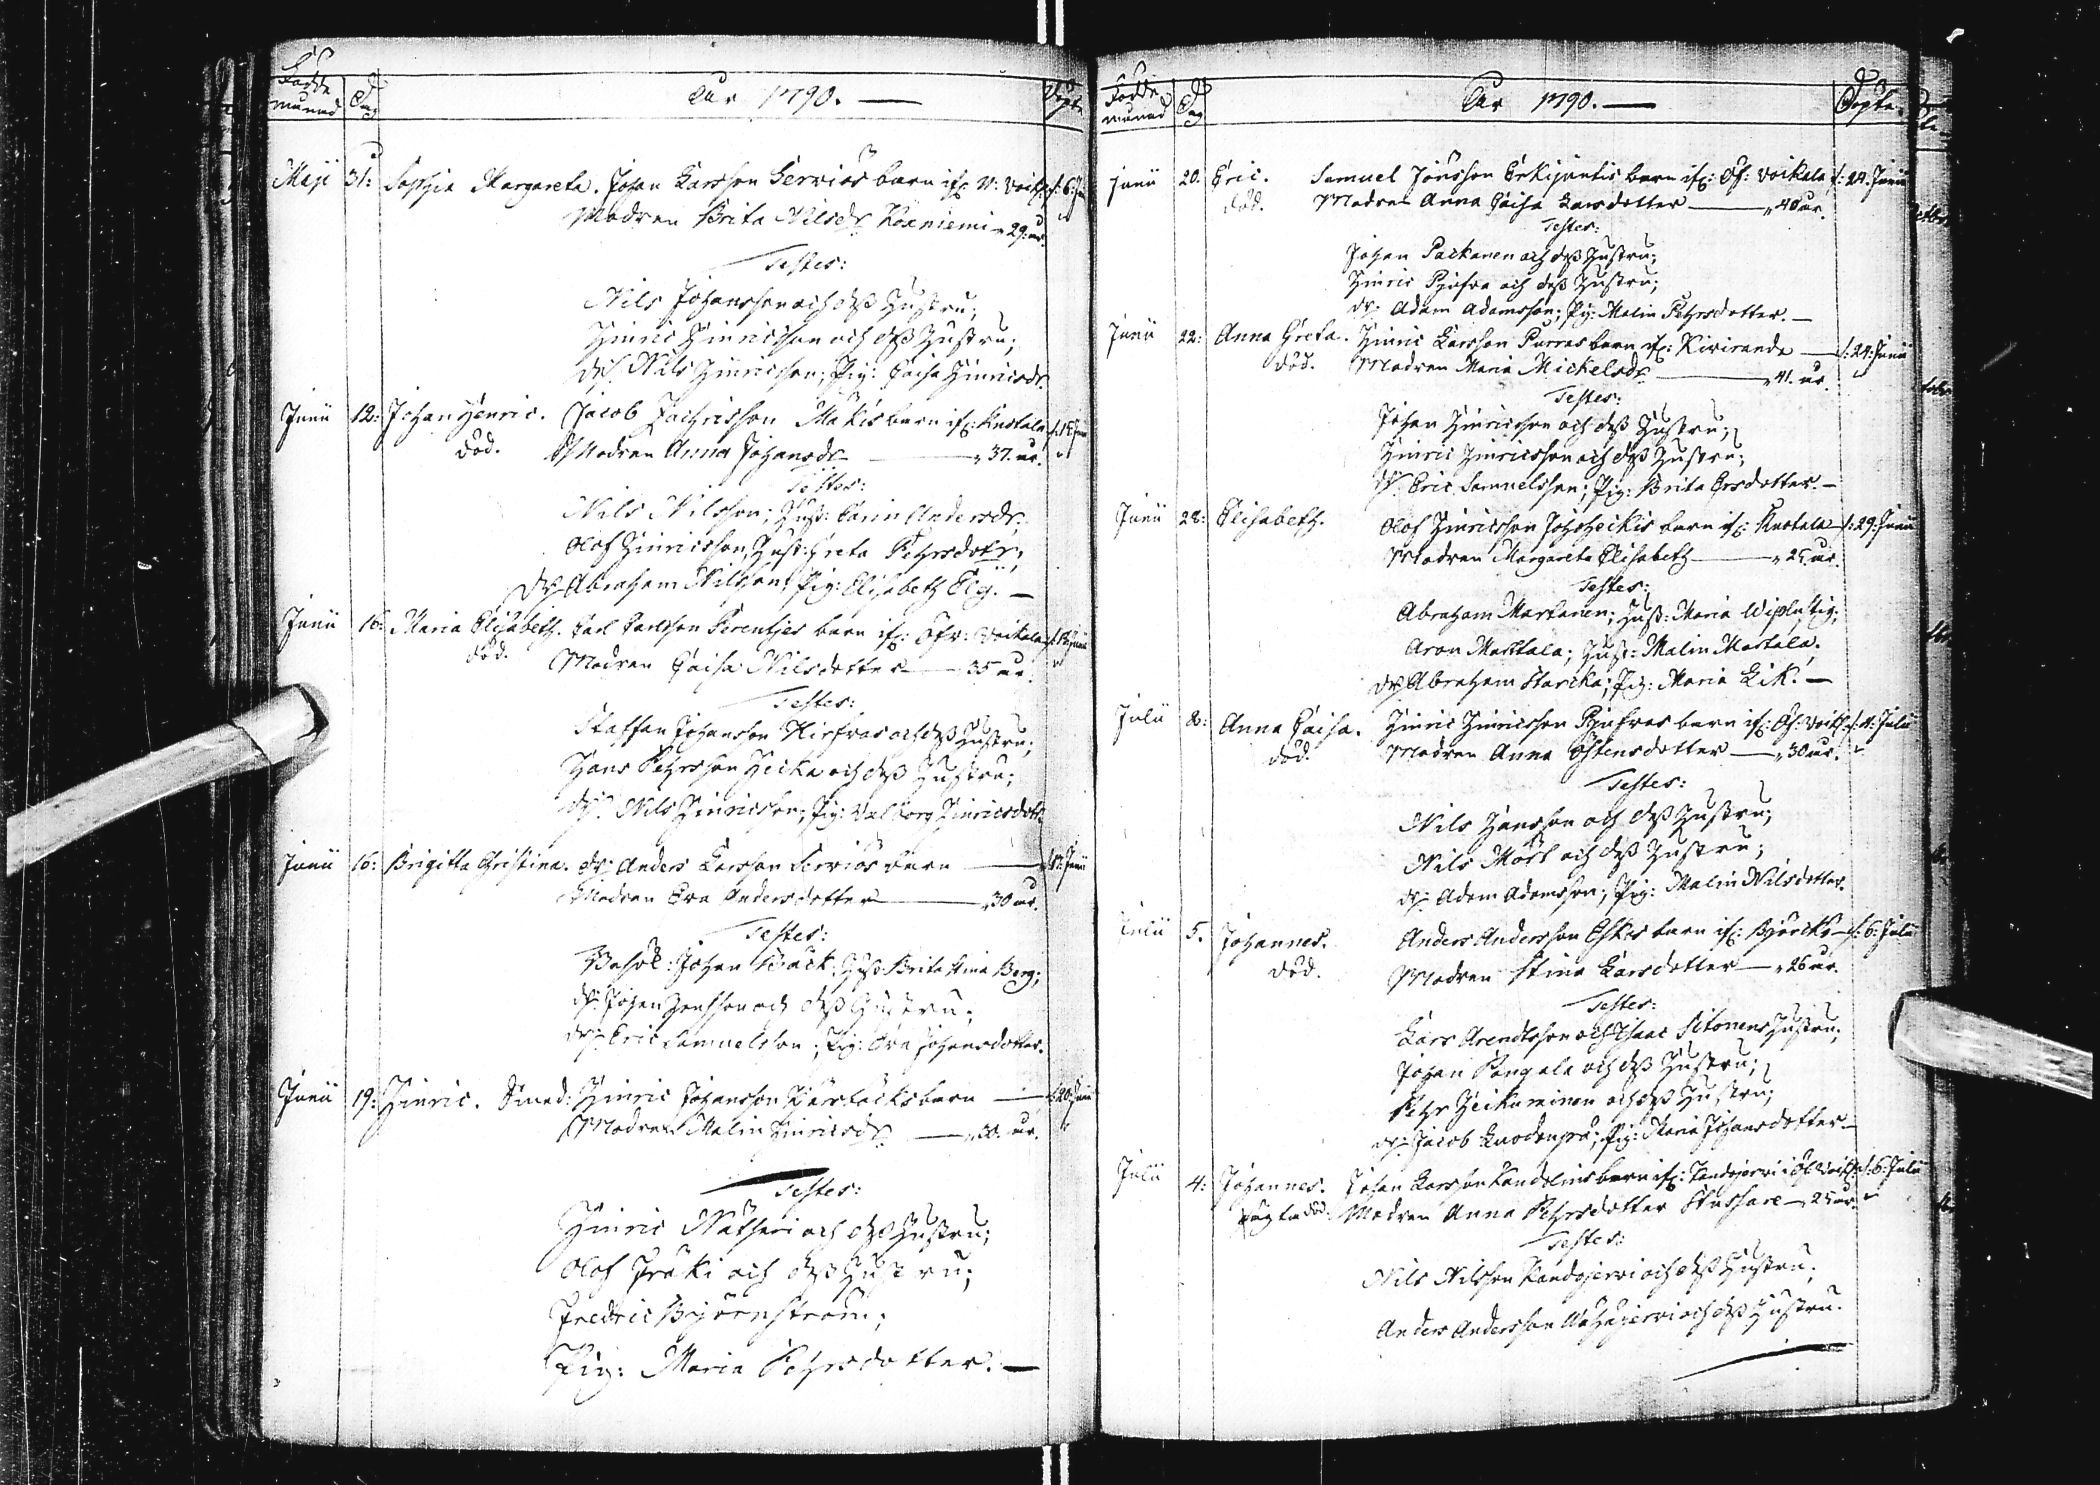 Födde månad Dag År 1790. — Döpte
Maji 31: Sophia Margareta. Johan Larsson Servios barn if: N: Voik: d: 6: Jun
Modren Brita Nilsdr Kärniemi „ 29: år.
Testes:
Nils Johansson och dess Hustru;
Hinric Hinricsson och dess Hustru;
dr: Nils Hinricsson; Pig: Caisa Hinricsdr
Junii 12: Johan Henric. Jacob Zachrisson Mäkis barn if: Kustala
död. Modren Anna Johansdr — „ 37. år.
Testes:
Nils Nilsson; Hust: Carin Andersdr:
Olof Hinricsson, Hust: Greta Pehrsdotr;
dr: Abraham Nilsson; Pig: Elisabeth Elg. —
Junii 16: Maria Elisabeth. Carl Carlsson Perentjes barn if: Öfr: Voikala
död. Modren Caisa Nilsdotter — 35 år.
Testes:
Staffan Johansson Hirfvas och dess Hustru;
Hans Pehrsson Heika och dess Hustru;
dr: Nils Hinricsson; Pig: Valborg Hinricsdotr
Junii 16: Brigitta Christina. dr: Anders Larsson Servios barn — d: 17: Junii
Modren Eva Andersdotter — „ 30 år.
Testes:
Johan Bäck; Hust: Brita Stina Berg;
dr: Johan Jönsson och dess Hustru;
dr: Eric Samuelsson; Pig: Eva Johansdotter.
Junii 19: Hinric. Smed: Hinric Johansson Kärktäcks barn — d: 20: Junii
Modren Malin Hinricsdr. — „ 30. år.
Testes:
Hinric Nätheri och dess Hustru;
Olof Präki och dess Hustru;
Fredric Björnström;
Pig: Maria Pehrsdotter. —
Födde månad Dag År 1790. — Döpte.
Junii 20. Eric. Samuel Jönsson Erkijuntis barn if: Öf: Voikala d: 24. Junii
död. Modren Anna Caisa Larsdotter — „ 40 år.
Testes:
Johan Packanen och dess Hustru;
Hinric Pjufva och dess Hustru;
dr: Adam Adamsson; Pig: Malin Pehrsdotter. —
Junii 22: Anna Greta. Hinric Larsson Purras barn if: Kiviranda — d: 24: Junii
död. Modren Maria Mickelsdr. — „ 41. år.
Testes:
Johan Hinricsson och dess Hustru;
Hinric Hinricsson och dess Hustru;
dr: Eric Samuelsson; Pig: Brita Ersdotter. —
Junii 28: Elisabeth. Olof Hinricsson Johsheikis barn if: Kustala — d: 29: Junii
Modren Margareta Elisabeth — „ 25 år.
Testes:
Abraham Martanen; Hust: Maria Wiplustig;
Aron Martala; Hust: Malin Martala;
dr: Abraham Starcka; Pig: Maria Lik. —
Julii 2: Anna Caisa. Hinric Hinricsson Pjufvas barn if: Öf: Voik: d: 4: Julii
död. Modren Anna Östensdotter — „ 30 år.
Testes:
Nils Hansson och dess Hustru;
Nils Mört och dess Hustru;
dr: Adam Adamsson; Pig: Malin Nilsdotter.
Julii 5. Johannes. Anders Andersson Eskes barn if: Björckö — d: 6: Julii
död. Modren Stina Larsdotter — „ 26 år.
Testes:
Lars Arendtsson och Isaac Sitonens Hustru;
Johan Pangala och dess Hustru;
Pehr Heikuninen och dess Hustru;
dr: Jacob Luodonpä; Pig: Maria Johansdotter —
Julii 4: Johannes. Johan Larsson Kandolins barn if: Kandojervi i Öf: Voik: d: 6: Julii
död: Modren Anna Pehrsdotter Stussare — „ 25 år.
Testes:
Nils Nilsson Kandojervi och dess Hustru;
Anders Andersson Wähäjervi och dess Hustru.